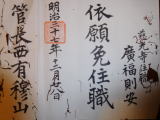 廣福則安
依願免住職
明治三十七年十二月八日
管長西有穆山